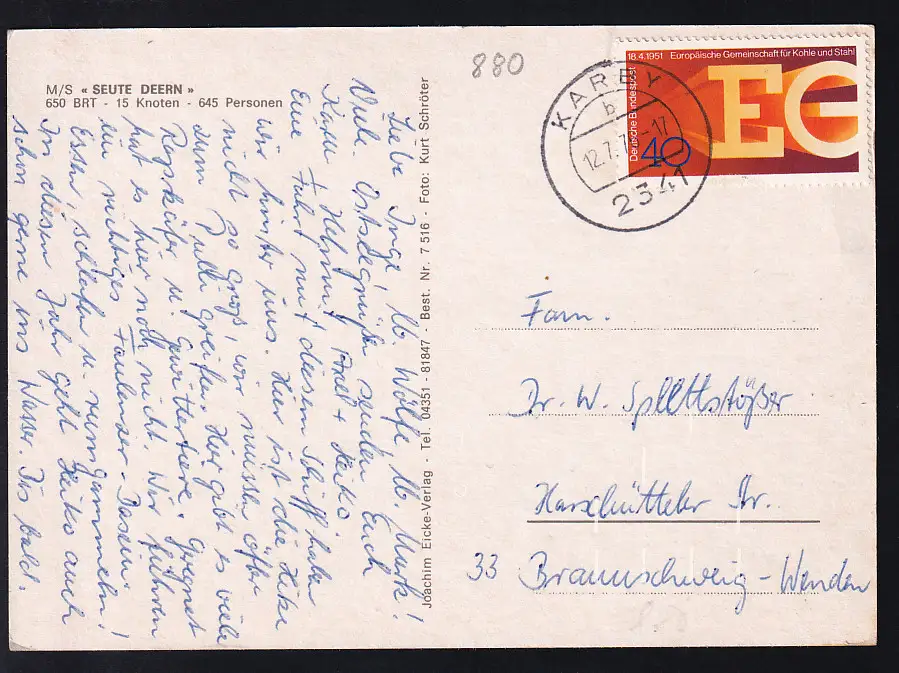 M/S « SEUTE DEERN »
650 BRT - 15 Knoten - 645 Personen
Liebe Inge, lb. Wölfe lb. Mark!
Viele Ostseegrüße senden Euch
Karin Helmut, Heiko.
Eine Fahrt mit diesem Schiff haben
wir hinter uns. Hier ist die Hitze
nicht so groß, wir müssen öfter
zum Pulli greifen. Hier gibt es viele
Rapskäfer u. Gewittertiere. Geregnet
hat es hier noch nicht. Wir führen
ein richtiges Faulenzer-Dasein.
Essen, schlafen u. rumgammeln!
In diesem Jahr geht Heiko auch
schon gerne ins Wasser. Bis bald.
Joachim Eicke-Verlag - Tel. 04351 - 81847 - Best. Nr. 7 516 - Foto: Kurt Schröter
880
KARBY
b
12.7.7 -17
2341
18.4.1951 Europäische Gemeinschaft für Kohle und Stahl
Deutsche Bundespost
40
EG
Fam.
Dr. W. Splettstößer
Harxbütteler Str.
33 Braunschweig-Wenden